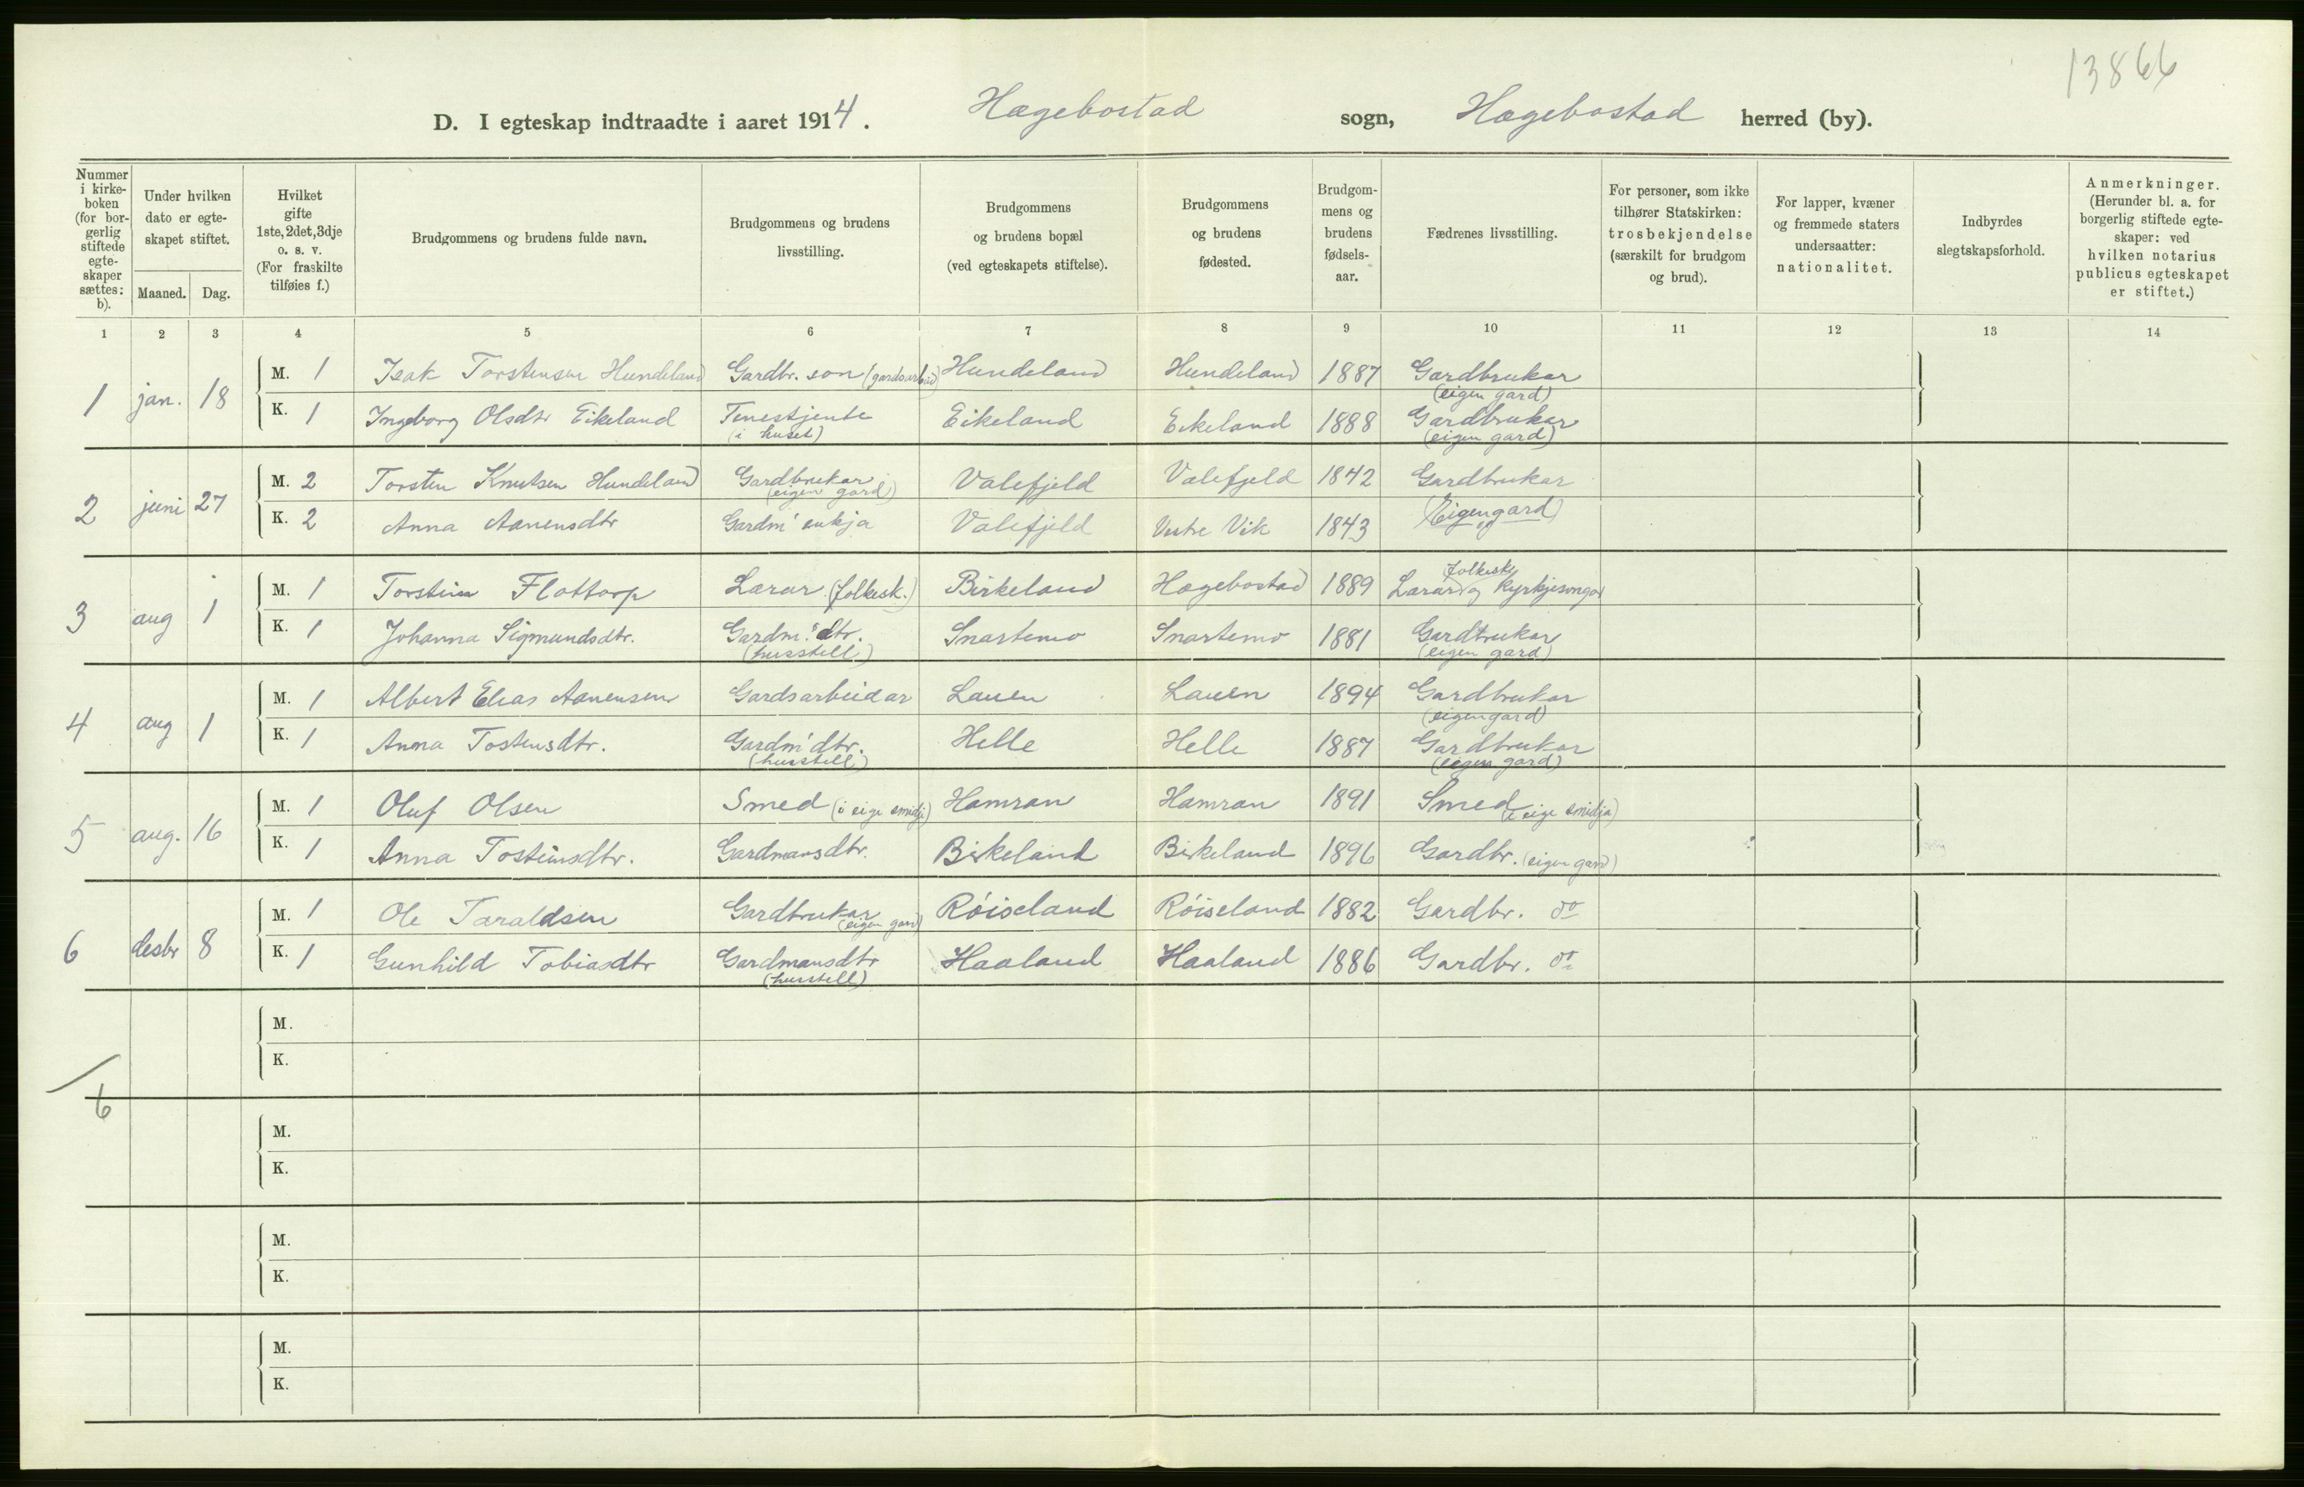 13866
D. I egteskap indtraadte i aaret 1914. Hægebostad sogn, Hægebostad herred (by).
Nummer i kirke-boken (for bor-gerlig stiftede egte-skaper sættes: b).
Under hvilken dato er egte-skapet stiftet.
Maaned. Dag.
Hvilket gifte 1ste, 2det, 3dje o. s. v. (For fraskilte tilføies f.)
Brudgommens og brudens fulde navn.
Brudgommens og brudens livsstilling.
Brudgommens og brudens bopæl (ved egteskapets stiftelse).
Brudgommens og brudens fødested.
Brudgom-mens og brudens fødsels-aar.
Fædrenes livsstilling.
For personer, som ikke tilhører Statskirken: trosbekjendelse (særskilt for brudgom og brud).
For lapper, kvæner og fremmede staters undersaatter: nationalitet.
Indbyrdes slegtskapsforhold.
Anmerkninger. (Herunder bl. a. for borgerlig stiftede egte-skaper: ved hvilken notarius publicus egteskapet er stiftet.)
1 2 3 4 5 6 7 8 9 10 11 12 13 14
1 jan. 18 M. 1 Isak Torstensen Hundeland Gardbr. son (gardsarbeid) Hundeland Hundeland 1887 Gardbrukar (eigen gard)
K. 1 Ingeborg Olsdtr Eikeland Tenestjente (i huset) Eikeland Eikeland 1888 Gardbrukar (eigen gard)
2 juni 27 M. 2 Torsten Knutsen Hundeland Gardbrukar (eigen gard) Valefjeld Valefjeld 1842 Gardbrukar
K. 2 Anna Aanensdtr Gardm' enkja Valefjeld Vestre Vik 1843 (Eigen gard)
3 aug 1 M. 1 Torstein Flottorp Lærar (folkesk.) Birkeland Hægebostad 1889 Lærar folkesk og kyrkjesongar
K. 1 Johanna Sigmundsdtr. Gardm.s dtr. (husstell) Snartemo Snartemo 1881 Gardbrukar (eigen gard)
4 aug 1 M. 1 Albert Elias Aanensen Gardsarbeidar Lauen Lauen 1894 Gardbrukar (eigen gard)
K. 1 Anna Tostensdtr. Gardm' dtr. (husstell) Helle Helle 1887 Gardbrukar (eigen gard)
5 aug. 16 M. 1 Oluf Olsen Smed (i eige smidje) Hamran Hamran 1891 Smed (i eige smidja)
K. 1 Anna Tosteinsdtr. Gardmansdtr. Birkeland Birkeland 1896 Gardbr. (eigen gard)
6 desbr 8 M. 1 Ole Taraldsen Gardbrukar (eigen gard) Røiseland Røiseland 1882 Gardbr. do
K. 1 Gunhild Tobiasdtr Gardmansdtr (husstell) Haaland Haaland 1886 Gardbr. do
M.
K.
6
M.
K.
M.
K.
M.
K.